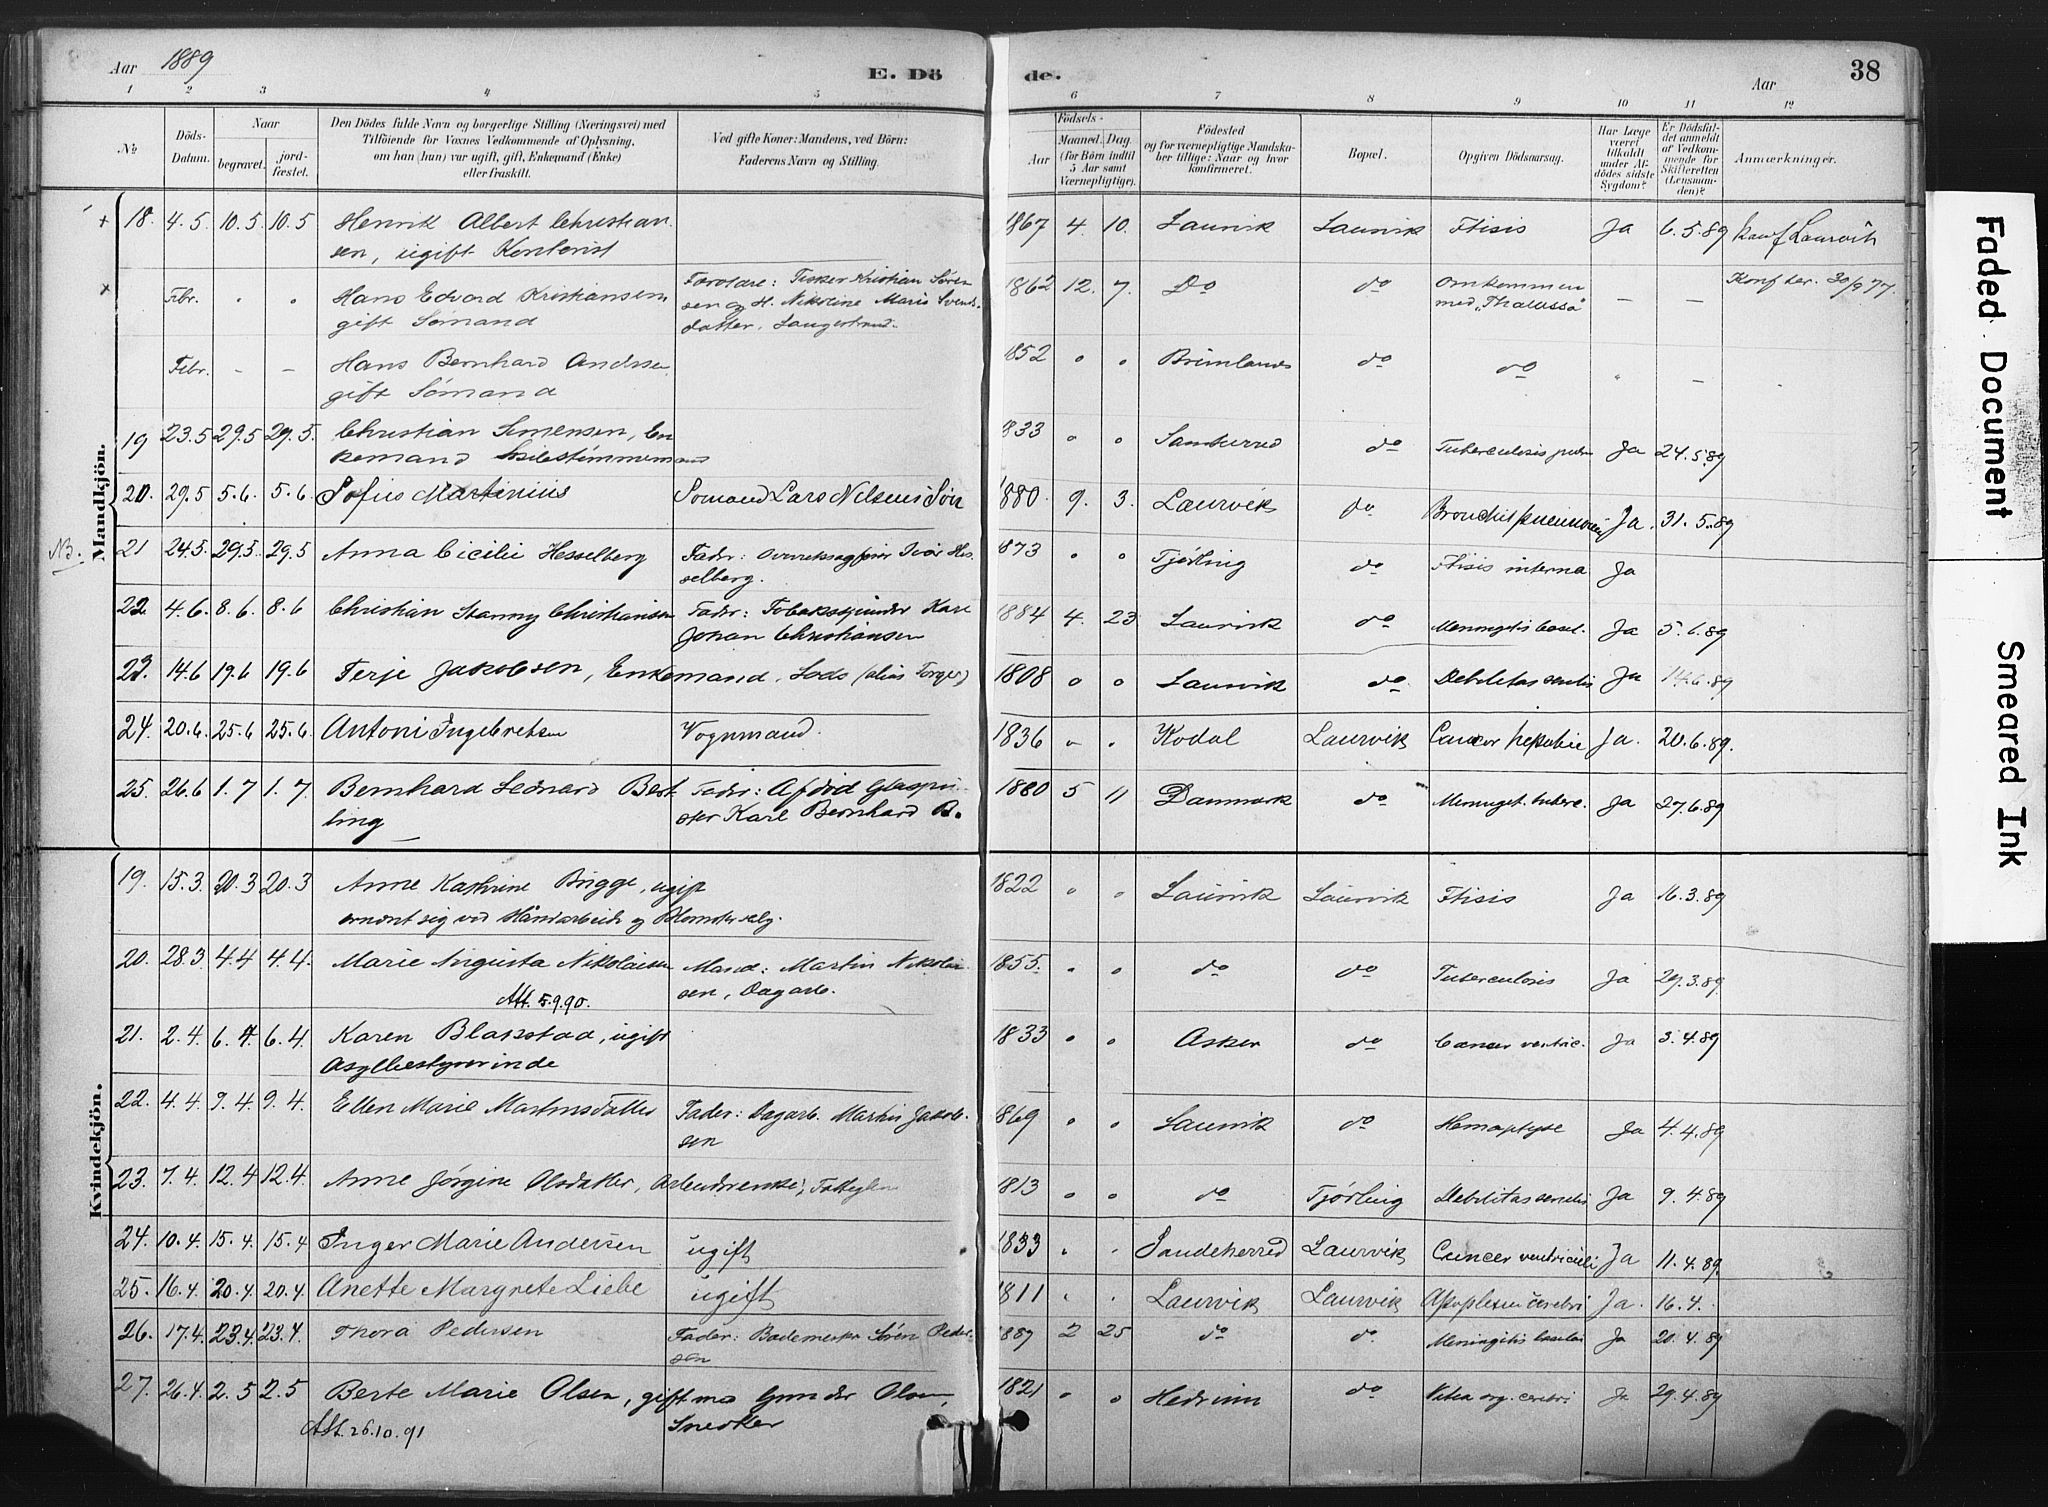 Aar 1889 E. Dö de. Aar 38
1 2 3 4 5 6 7 8 9 10 11 12
No
Döds-Datum.
Naar
begravet.
jordfæstet.
Den Dödes fulde Navn og borgerlige Stilling (Næringsvei) med
Tilföiende for Voxnes Vedkommende af Oplysning,
om han (hun) var ugift, gift, Enkemand (Enke)
eller fraskilt.
Ved gifte Koner: Mandens, ved Börn:
Faderens Navn og Stilling.
Födsels-
Aar
Maaned. Dag.
(for Börn indtil
5 Aar samt
Værnepligtige).
Födested
og for værnepligtige Mandska-
ber tillige: Naar og hvor
konfirmeret.
Bopæl.
Opgiven Dödsaarsag.
Har Læge
været
tilkaldt
under Af-
dödes sidste
Sygdom?
Er Dödsfal-
det anmeldt
af Vedkom-
mende for
Skifteretten
(Lensman-
den)?
Anmærkninger.
Mandkjön.
18. 4.5 10.5 10.5 Henrik Albert Christian- 1867 4. 10. Laurvik Laurvik Ftisis Ja 6.5.89 Konf Laurvik
sen, ugift Kontorist
Febr. Hans Edvard Kristiansen Forældre: Fisker Kristian Søren- 1862 12. 7. Do do omkommen — — Konf her. 30/9 77.
gift Sømand sen og H. Nikoline Marie Svends- med "Thalassa"
datter, Langestrand.
Febr. – – Hans Bernhard Andrsen 1852 o o do do —
gift Sømand
19 23.5 29.5 29.5. Christian Simensen, En- 1833 o o Sandherred do Tuberculosis pulm Ja 24.5.89
kemand
20. 29.5 5.6. 5.6 Sofus Martinius Sømand Lars Nilsens Søn 1880. 9. 3. Laurvik do Ja. 31.5.89
NB. 21 24.5 29.5. 29.5 Anna Cicilie Hesselberg Fader: Overretssagfører Ivar Hes- 1873 o o Tjølling do Ftisis interna Ja
selberg.
22 4.6. 8.6. 8.6 Christian Stanny Christiansen Fader: Tobaksspinder Karl 1884 4. 23. Laurvik do Meningitis basil. Ja 5.6.89
Johan Christiansen
23. 14.6 19.6 19.6 Terje Jakobsen, Enkemand, Lods (alias Torger) 1808 o o Laurvik do. Debilitas senilis Ja 14.6.89
24. 20.6. 25.6 25.6. Antoni Ingebretsen Vognmand. 1836 Kodal Laurvik Cancer hepatis Ja. 20.6.89.
25. 26.6 1.7 1.7. Bernhard Leonard Best- Fader: Afdød Glaspu- 1880 5 11 Danmark do Meninget. tuberc. Ja 27.6.89
ling ster Karl Bernhard B.
Kvindekjön.
19. 15.3. 20.3 20.3 Anne Kathrine Brygge, ugift 1822 o o Laurvik Laurvik Ftisis Ja 16.3.89
ernæret sig ved Håndarbeide og Blomstersalg.
20. 28.3 4.4 4.4. Marie Augusta Nikolaisen Mand: Martin Nikolai- 1855. o o do do Tuberculosis Ja 29.3.89.
Att. 5.9.90. sen, Dagarb.
21. 2.4. 6.4. 6.4. Karen Blakstad, ugift 1833 o o Asker do Cancer ventric. Ja 3.4.89
Asylbestyrerinde
22. 4.4. 9.4. 9.4. Ellen Marie Martinsdatter Fader: Dagarb. Martin Jakob- 1869 o o Laurvik do Hemoptyse Ja 4.4.89
sen
23. 7.4. 12.4 12.4 Anne Jørgine Olsdatter, Arbeiderenke, Fattiglem 1813 o o do Tjølling Debilitas senilis Ja 9.4.89
24. 10.4. 15.4. 15.4 Inger Marie Andersen ugift 1833 Sandeherred Laurvik Cancer ventriculi Ja 11.4.89.
25. 16.4. 20.4. 20.4 Anette Margrete Liebe ugift 1811 Laurvik Laurvik Apoplexia cerebri Ja. 16.4.
26. 17.4. 23.4. 23.4. Thora Pedersen Fader: Bademester Søren Peder- 1889 2 25 do do. Meningitis basilar Ja 20.4.89
sen
27. 26.4. 2.5 2.5 Berte Marie Olsen, gift med Gunder Olsen, 1821 o o Hedrum do Vitia org. cerebri Ja 29.4.89
Att. 26.10.91 Snedker
Faded Document
Smeared Ink